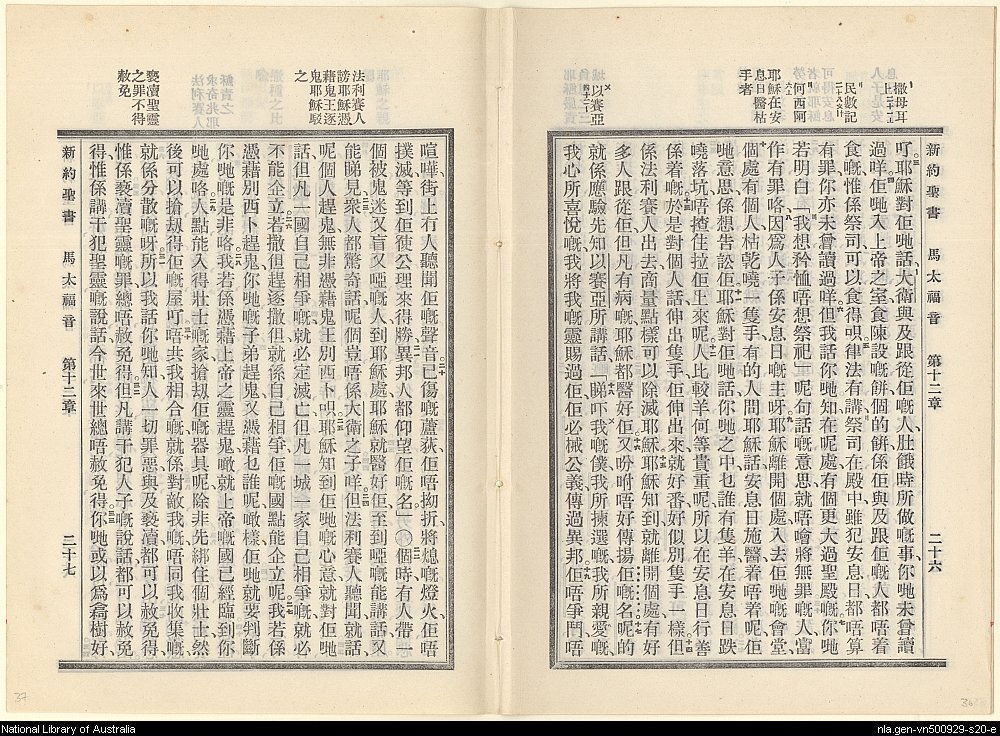 撒母耳上二十一
民數記二十八
何西阿六
耶穌在安息日醫枯手者
以賽亞四十二
新約聖書　馬太福音　第十二章　二十六
叮耶穌對佢哋話大衛與及跟從佢嘅人肚餓時所做嘅事你哋未曾讀
過咩佢哋入上帝之室食陳設嘅餅個的餅係佢與及跟佢嘅人都唔着
食嘅惟係祭司可以食得呮律法有講祭司在殿中雖犯安息日都唔算
有罪你亦未曾讀過咩但我話你哋知在呢處有個更大過聖殿嘅你哋
若明白我想矜恤唔想祭祀呢句話嘅意思就唔噲將無罪嘅人當
作有罪咯因爲人子係安息日嘅主呀耶穌離開個處入去佢哋嘅會堂
個處有個人枯乾嘵一隻手有的人問耶穌話安息日施醫着唔着呢佢
哋意思係想告訟佢耶穌對佢哋話你哋之中乜誰有隻羊在安息日跌
嘵落坑唔揸住拉佢上來呢人比較羊何等貴重呢所以在安息日行善
係着嘅於是對個人話伸出隻手佢伸出來就好番好似別隻手一樣但
係法利賽人出去商量點樣可以除滅耶穌耶穌知到就離開個處有好
多人跟從佢但凡有病嘅耶穌都醫好佢又吩咐唔好傳揚佢嘅名呢的
就係應驗先知以賽亞所講話睇吓我嘅僕我所揀選嘅我所親愛嘅
我心所喜悅嘅我將我嘅靈賜過佢佢必械公義傳過異邦佢唔爭鬥唔
法利賽人謗耶穌憑藉鬼王逐鬼耶穌駁之
褻瀆聖靈之罪不得赦免
喧嘩街上有人聽聞佢嘅聲音已傷嘅蘆荻佢唔拗折將熄嘅燈火佢唔
撲滅等到佢使公理來得勝異邦人都仰望佢嘅名〇個時有人帶一
個被鬼迷又盲又啞嘅人到耶穌處耶穌就醫好佢至到啞嘅能講話又
能睇見衆人都驚奇話呢個豈唔係大衛之子咩但法利賽人聽聞就話
呢個人趕鬼無非憑藉鬼王別西卜呮耶穌知到佢哋嘅心意就對佢哋
話但凡一國自己相爭嘅就必定滅亡但凡一城一家自己相爭嘅就必
不能企立若撒但趕逐撒但就係自己相爭佢嘅國點能企立呢我若係
憑藉別西卜趕鬼你哋嘅子弟趕鬼又憑藉乜誰呢噉樣佢哋就要判斷
你哋嘅是非咯我若係憑藉上帝之靈趕鬼噉就上帝嘅國已經臨到你
哋處咯人點能入得壯士嘅家搶劫佢嘅器具呢除非先綁住個壯士然
後可以搶劫得佢嘅屋叮唔共我相合嘅就係對敵我嘅唔同我收集嘅
就係分散嘅呀所以我話你哋知人一切罪惡與及褻瀆都可以赦免得
惟係褻瀆聖靈嘅罪總唔赦免得但凡講干犯人子嘅說話都可以赦免
得惟係講干犯聖靈嘅說話今世來世總唔赦免得你哋或以爲樹好
新約聖書　馬太福音　第十二章　二十七
37
36
National Library of Australia
nla.gen-vn500929-s20-e